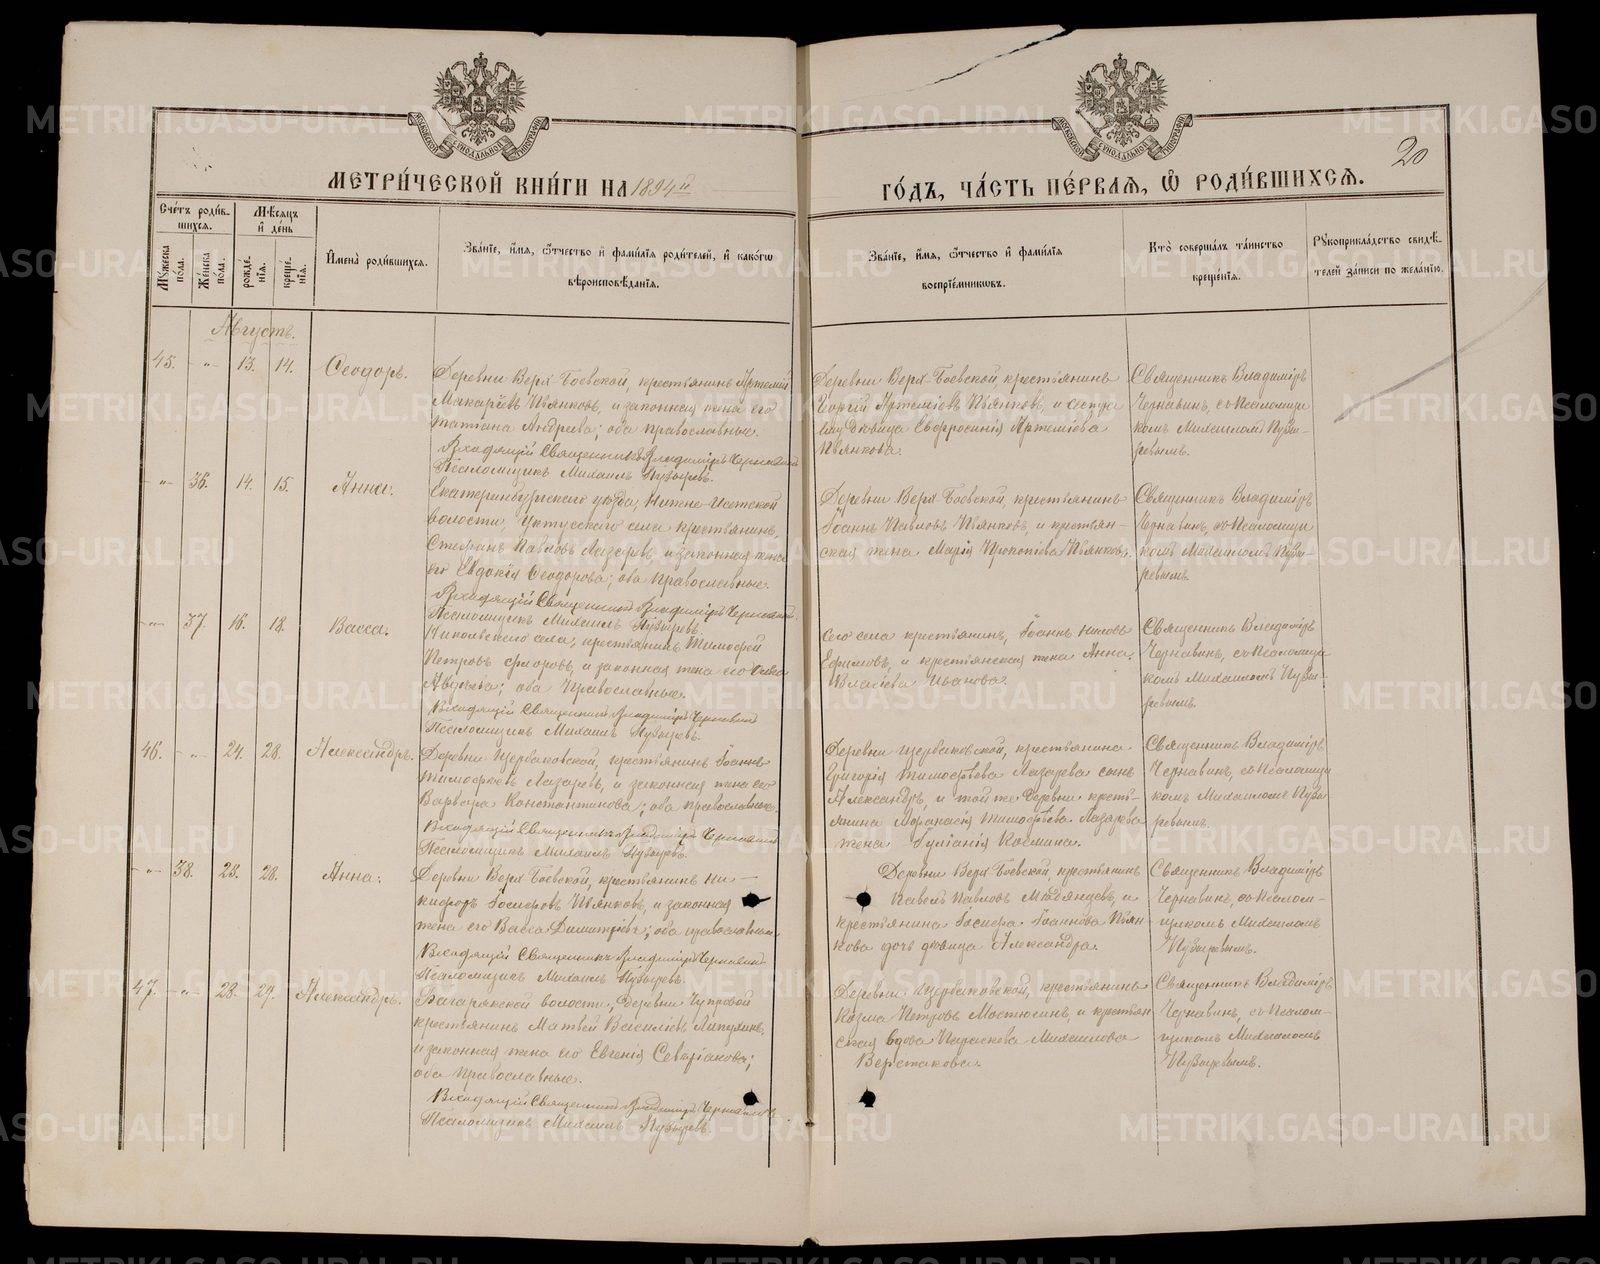 МЕТРИ́ЧЕСКОЙ КНИ́ГИ НА 1894й
ГО́ДЪ, ЧА́СТЬ ПЕ́РВАѦ, Ѿ РОДИ́ВШИХСѦ.
20
МОСКОВСКОЙ СѴНОДАЛЬНОЙ ТИПОГРАФІИ
МОСКОВСКОЙ СѴНОДАЛЬНОЙ ТИПОГРАФІИ
Сче́тъ роди́в-
шихся.
Мѣ́сяцъ
и҆ де́нь
Мꙋ́жеска по́ла.
Же́нска по́ла.
рожде́-
нїѧ.
креще́-
нїѧ.
И҆мена̀ роди́вшихся.
Зва́нїе, и҆́мѧ, ѻ҆́тчество и҆ фами́лїѧ роди́телей, и҆ како́гѡ
вѣроисповѣ́данїѧ.
Зва́нїе, и҆́мѧ, ѻ҆́тчество и҆ фами́лїѧ
воспрїе́мникѡвъ.
Кто̀ соверша́лъ та́инство
креще́нїѧ.
Рꙋкоприкла́дство свидѣ́-
телей за́писи по жела́нїю.
Августъ.
45. -„- 13. 14. Ѳеодоръ.
Деревни Верх-Боевской, крестьянинъ Артемій
Макаріевъ Пьянковъ, и законная жена его
Татіана Андреева; оба православные.
Входящій Священникъ Владиміръ Чернавинъ
Псаломщикъ Михаилъ Пузыревъ.
Деревни Верх-Боевской, крестьянинъ
Артеміевъ Пьянковъ, и сестра
дѣвица Евфросинія Артеміева
Пьянкова.
Священникъ Владиміръ
Чернавинъ, съ Псаломщи
комъ Михаиломъ Пузы-
ревымъ.
-„- 36. 14. 15. Анна.
Екатеринбургскаго уѣзда, Нижне-Исетской
волости, Уктусскаго села крестьянинъ,
Стефанъ Павловъ Лазаревъ, и законная жена
его Евдокія Ѳеодорова; оба православные.
Входящій Священникъ Владиміръ Чернавинъ
Псаломщикъ Михаилъ Пузыревъ.
Деревни Верх Боевской, крестьянинъ
Іоаннъ Павловъ Пьянковъ, и крестьян-
ская жена Марія Прокопіева Пьянкова.
Священникъ Владиміръ
Чернавинъ, съ Псаломщи
комъ Михаиломъ Пузы-
ревымъ.
-„- 37. 16. 18. Васса.
Никольскаго села, крестьянинъ Тимофей
Петровъ и законная жена его
Авдеева; оба Православные.
Входящій Священникъ Владиміръ Чернавинъ
Псаломщикъ Михаилъ Пузыревъ.
Сего села крестьянинъ, Іоаннъ Ниловъ
Ефимовъ, и крестьянская жена Анна
Власіева Иванова.
Священникъ Владиміръ
Чернавинъ, съ Псаломщи
комъ Михаиломъ Пузы-
ревымъ.
46. -„- 24. 28. Александръ.
Деревни Щербаковской, крестьянинъ Іоаннъ
Тимофѣевъ Лазаревъ, и законная жена его
Варвара Константинова; оба православные.
Входящій Священникъ Владиміръ Чернавинъ
Псаломщикъ Михаилъ Пузыревъ.
Деревни Щербаковской, крестьянина
Григорія Тимофѣева Лазарева сынъ
Александръ, и той же деревни кресть-
янина Афанасія Тимофѣева Лазарева
жена Іуліанія Космина.
Священникъ Владиміръ
Чернавинъ, съ Псаломщи
комъ Михаиломъ Пузы
ревымъ.
-„- 38. 25. 28. Анна.
Деревни Верх Боевской, крестьянинъ Ни-
кифоръ Іосифовъ Пьянковъ, и законная
жена его Васса Димитріева; оба православные.
Входящій Священникъ Владиміръ Чернавинъ
Псаломщикъ Михаилъ Пузыревъ.
Деревни Верх Боевской, крестьянинъ
Павелъ Павловъ Медянцевъ, и
крестьянина Іосифа Іоаннова Пьян-
кова дочь дѣвица Александра.
Священникъ Владиміръ
Чернавинъ, съ Псалом-
щикомъ Михаиломъ
Пузыревымъ.
47. -„- 28. 29. Александръ.
Багарякской волости, деревни Чупровой
крестьянинъ Матвей Василіевъ
и законная жена его Евгенія Севиріанова;
оба Православные.
Входящій Священникъ Владиміръ Чернавинъ
Псаломщикъ Михаилъ Пузыревъ.
Деревни Щербаковской, крестьянинъ
Козма Петровъ Мостюсинъ, и крестьян
ская вдова Параскева Михаилова
Верстакова.
Священникъ Владиміръ
Чернавинъ, съ Псалом-
щикомъ Михаиломъ
Пузыревымъ.
METRIKI.GASO-URAL.RU